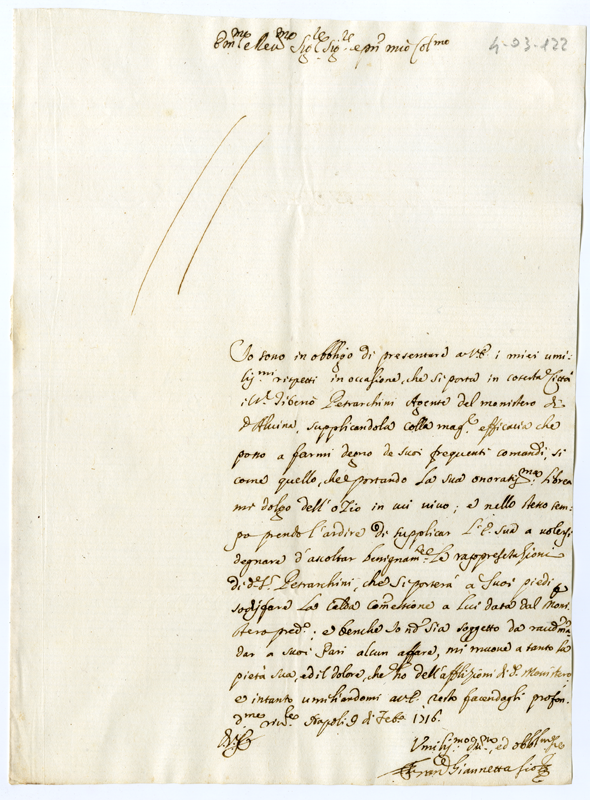 Em.mo e Rev.mo Sig.re Sig.re e pñ mio Col.mo
4-03-122
Io sono in obbligo di presentare a V.E. i miei umi-
liss.mi rispetti in occasione, che si porta in cotesta Città
Petrarchini Agente del monistero di
d'Alvina, supplicandola colla mag.r efficacia che
posso a farmi degno de suoi frequenti comandi, si
come quello, che portando la sua onoratiss.ma librea
mi dolgo dell'ozio in cui vivo; e nello stesso tem-
po prendo l'ardire di supplicar L'E. sua a volersi
degnare d'ascoltar benignam.te la rappresentazione
di d.o S.r Petrarchini, che si porterà a suoi piedi p
sodisfare la commessione a lui data dal Moni-
stero pred.o; e benche Io nō sia soggetto da raccōmā-
dar a suoi Pari alcun affare, mi muove a tanto la
pietà sua, ed il dolore, che ho dell'afflizioni di d.o Monistero,
e intanto umiliandomi a V.E. resto facendogli profon-
d.ma riv.za Napoli 9 di Feb.o 1716.
Umiliss.mo ed obbl.mo
Giannetta